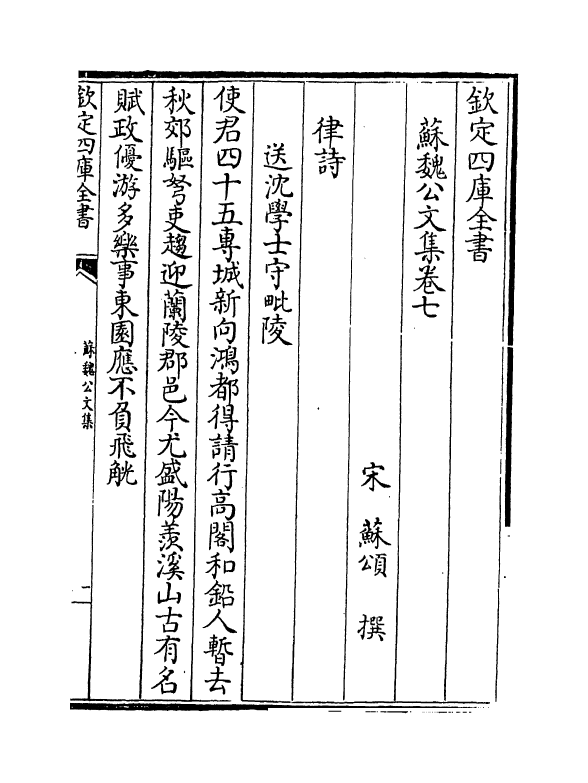 欽定四庫全書
蘇魏公文集卷七
宋 蘇頌 撰
律詩
送沈學士守毗陵
使君四十五專城新向鴻都得請行高閣和鉛人暫去
秋郊驅弩吏趨迎蘭陵郡邑今尤盛陽羨溪山古有名
賦政優游多樂事東園應不負飛觥
欽定四庫全書
蘇魏公文集
一